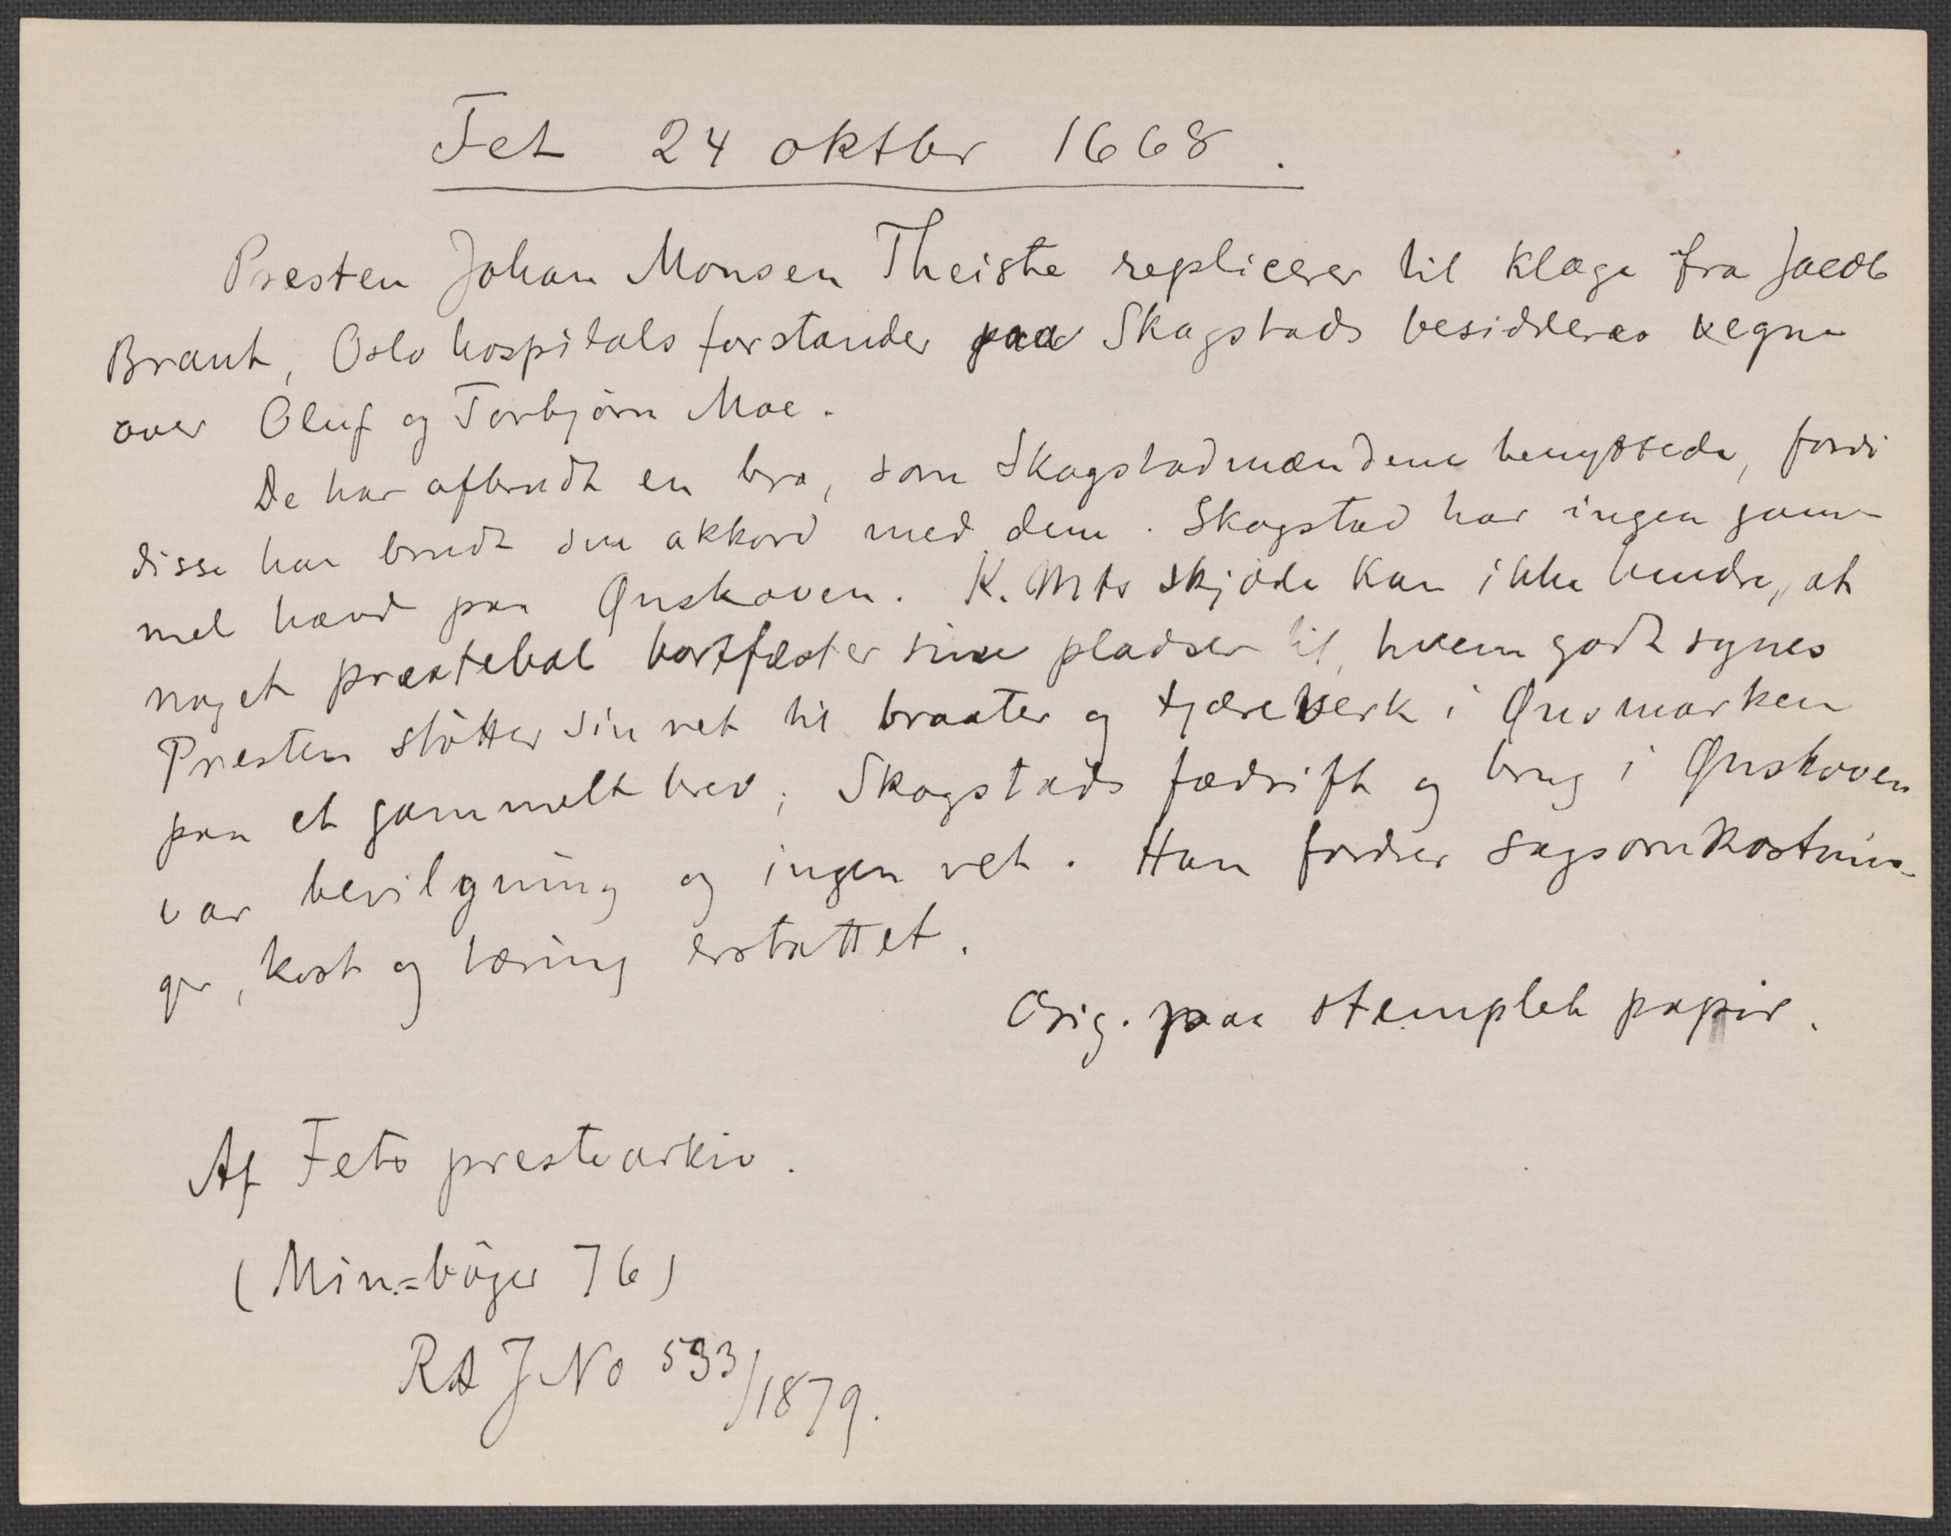 Fet 24 oktbr 1668.
Presten Johan Monsen Theiste replicerer til klage fra Jacob
Brant, Oslo hospitals forstander paa Skagstads besidderes vegne
over Oluf og Torbjørn Moe.
De har afbrudt en bro, som Skagstadmændene benyttede, fordi
disse har brudt sin akkord med dem. Skagstad har ingen gam-
mel hævd paa Ønskoven. K. Mts skjøde kan ikke hindre, at
noget præstebol bortfæster sine pladser til, hvem godt synes
Presten støtter sin ret til braater og tjæreverk i Ønsmarken
paa et gammelt brev; Skagstads fædrift og brug i Ønskoven
var bevilgning og ingen ret. Han fordrer sagsomkostnin-
ger, kost og tæring erstattet.
Orig. paa stemplet papir.
Af Fets prestearkiv.
(Min.=bøger 76)
RA J No 533/1879.